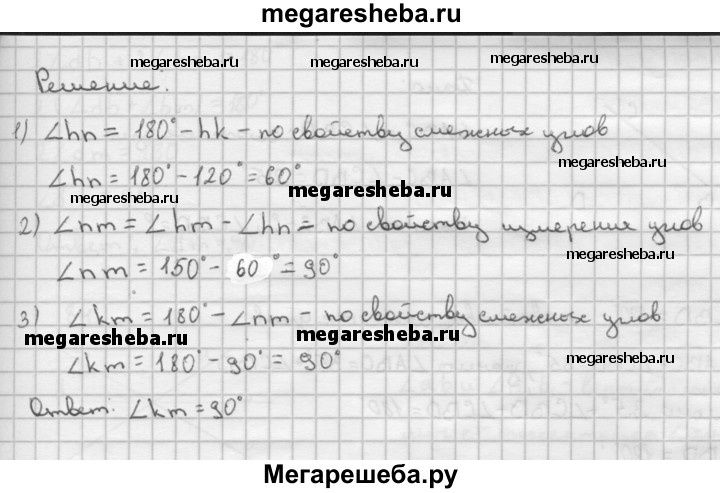 megaresheba.ru
megaresheba.ru megaresheba.ru megaresheba.ru
Решение.
1) ∠hn = 180° - hk - по свойству смежных углов
∠hn = 180° - 120° = 60°
megaresheba.ru megaresheba.ru megaresheba.ru
2) ∠nm = ∠hm - ∠hn = по свойству измерения углов
megaresheba.ru
∠nm = 150° - 60° = 90°
3) ∠km = 180° - ∠nm - по свойству смежных углов
megaresheba.ru megaresheba.ru
∠km = 180° - 90° = 90°
megaresheba.ru
Ответ: ∠km = 90°
Мегарешеба.ру